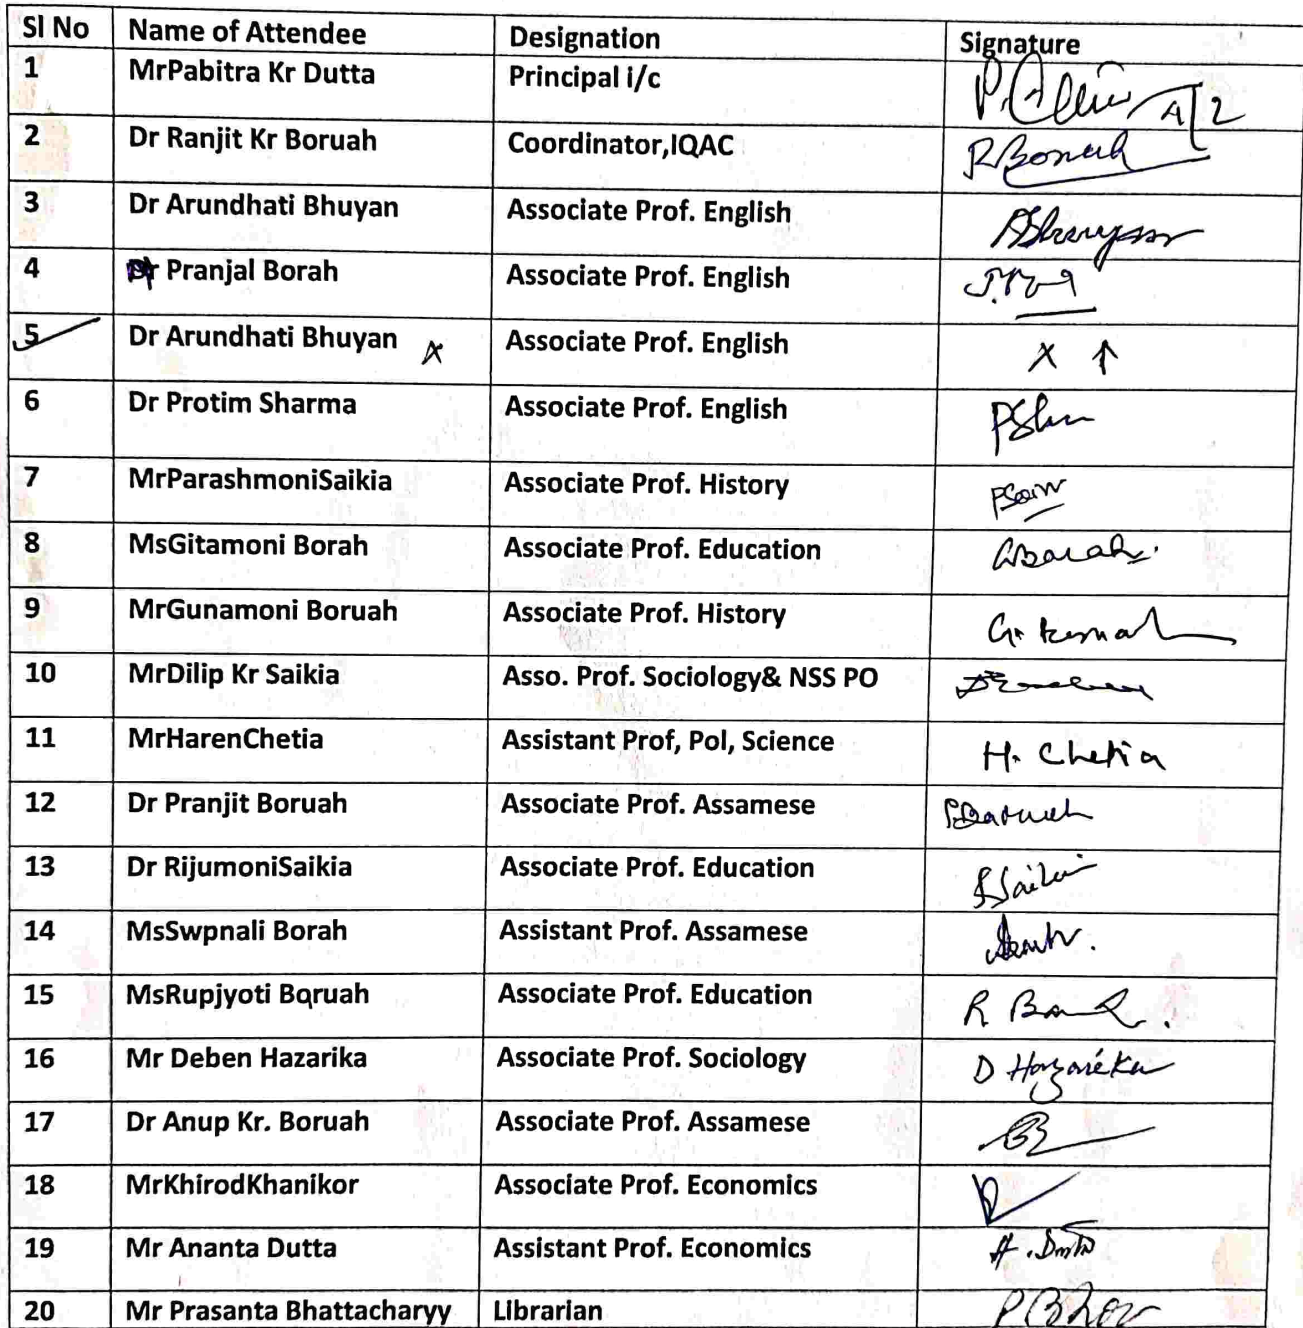 Sl No Name of Attendee Designation Signature
1 MrPabitra Kr Dutta Principal i/c
2 Dr Ranjit Kr Boruah Coordinator,IQAC RBoruah
3 Dr Arundhati Bhuyan Associate Prof. English ABhuyan
4 Pranjal Borah Associate Prof. English
5 Dr Arundhati Bhuyan x Associate Prof. English x ↑
6 Dr Protim Sharma Associate Prof. English
7 MrParashmoniSaikia Associate Prof. History
8 MsGitamoni Borah Associate Prof. Education GBorah.
9 MrGunamoni Boruah Associate Prof. History
10 MrDilip Kr Saikia Asso. Prof. Sociology& NSS PO
11 MrHarenChetia Assistant Prof, Pol, Science H. Chetia
12 Dr Pranjit Boruah Associate Prof. Assamese PBaruah
13 Dr RijumoniSaikia Associate Prof. Education RSaikia
14 MsSwpnali Borah Assistant Prof. Assamese
15 MsRupjyoti Boruah Associate Prof. Education
16 Mr Deben Hazarika Associate Prof. Sociology D Hazarika
17 Dr Anup Kr. Boruah Associate Prof. Assamese
18 MrKhirodKhanikor Associate Prof. Economics
19 Mr Ananta Dutta Assistant Prof. Economics A. Dutta
20 Mr Prasanta Bhattacharyy Librarian